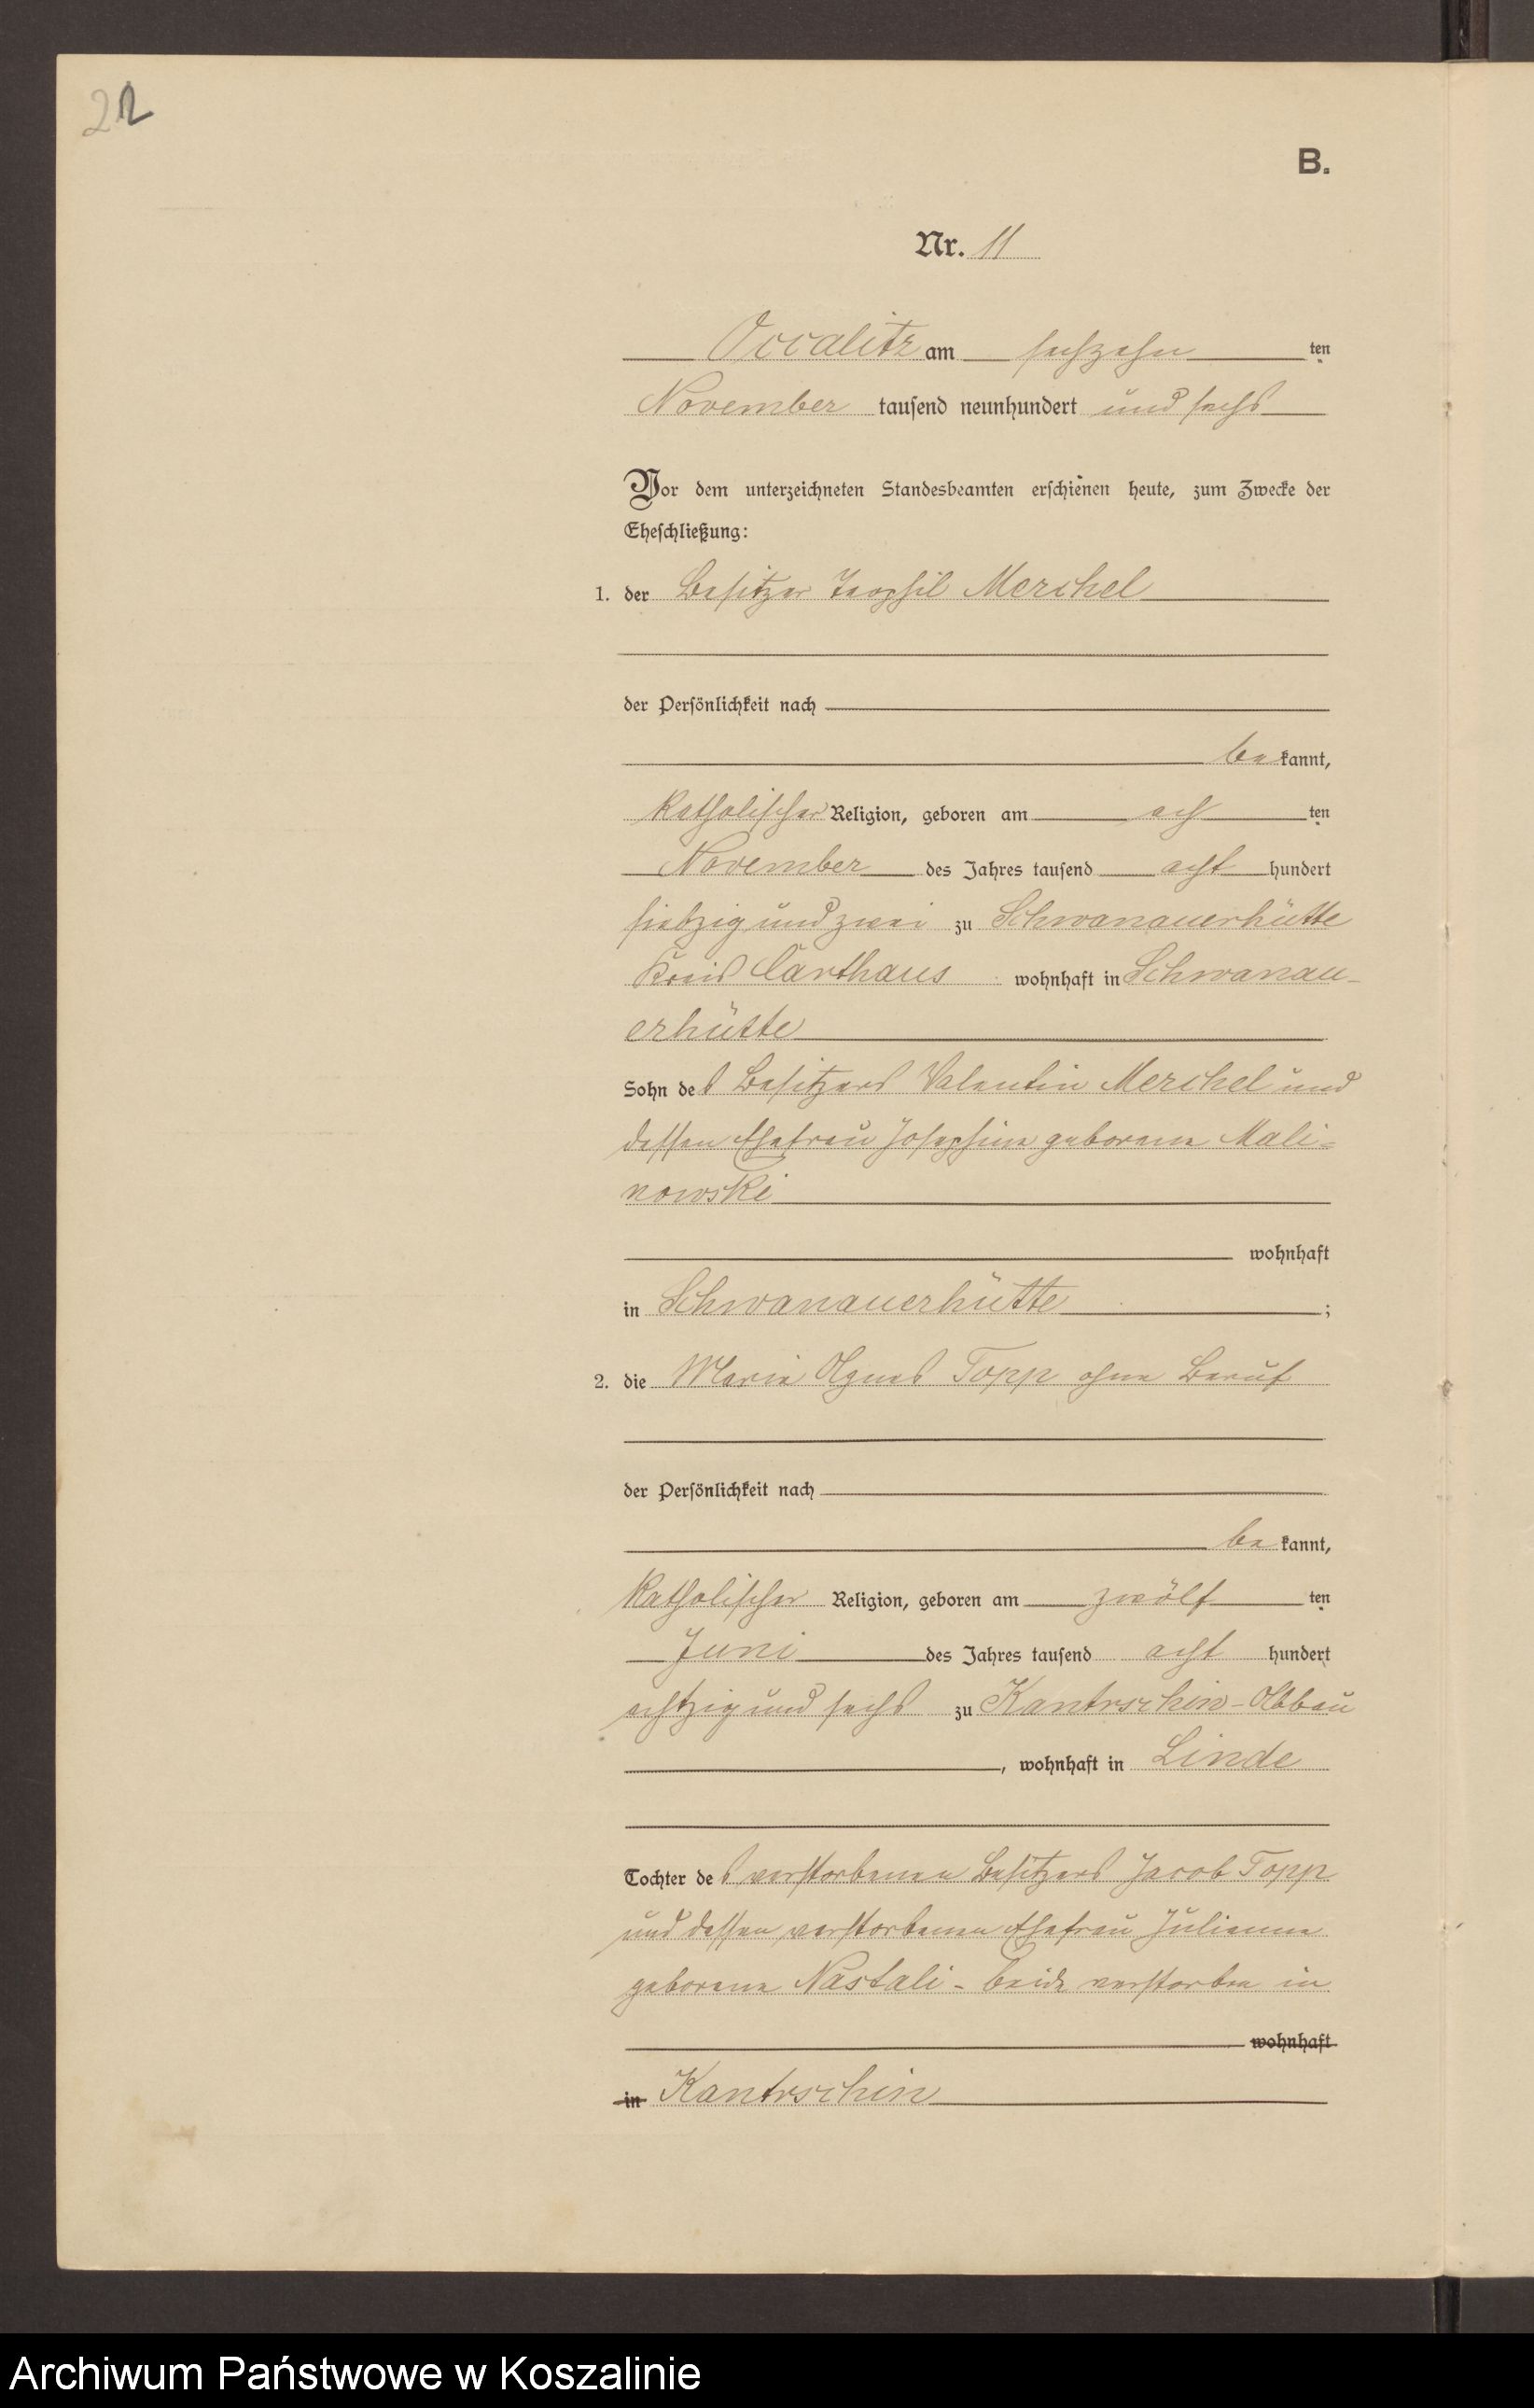 22
B.
Nr. 11
Occalitz am sechzehn ten
November tausend neunhundert und sechs
Vor dem unterzeichneten Standesbeamten erschienen heute, zum Zwecke der
Eheschließung:
1. der Besitzer Teophil Merchel
der Persönlichkeit nach
be kannt,
katholischer Religion, geboren am ach ten
November des Jahres tausend acht hundert
siebzig und zwei zu Schwanauerhütte
Kreis Carthaus wohnhaft in Schwanau-
erhütte
Sohn des Besitzers Valentin Merchel und
dessen Ehefrau Josephine geborene Mali=
nowski
wohnhaft
in Schwanauerhütte ;
2. die Maria Agnes Topp ohne Beruf
der Persönlichkeit nach
be kannt,
katholischer Religion, geboren am zwölf ten
Juni des Jahres tausend acht hundert
achtzig und sechs zu Kantrschin-Abbau
, wohnhaft in Linde
Tochter des verstorbenen Besitzers Jacob Topp
und dessen verstorbenen Ehefrau Julianna
geborene Nastali - beide verstorben in
wohnhaft
in Kantrschin
Archiwum Państwowe w Koszalinie